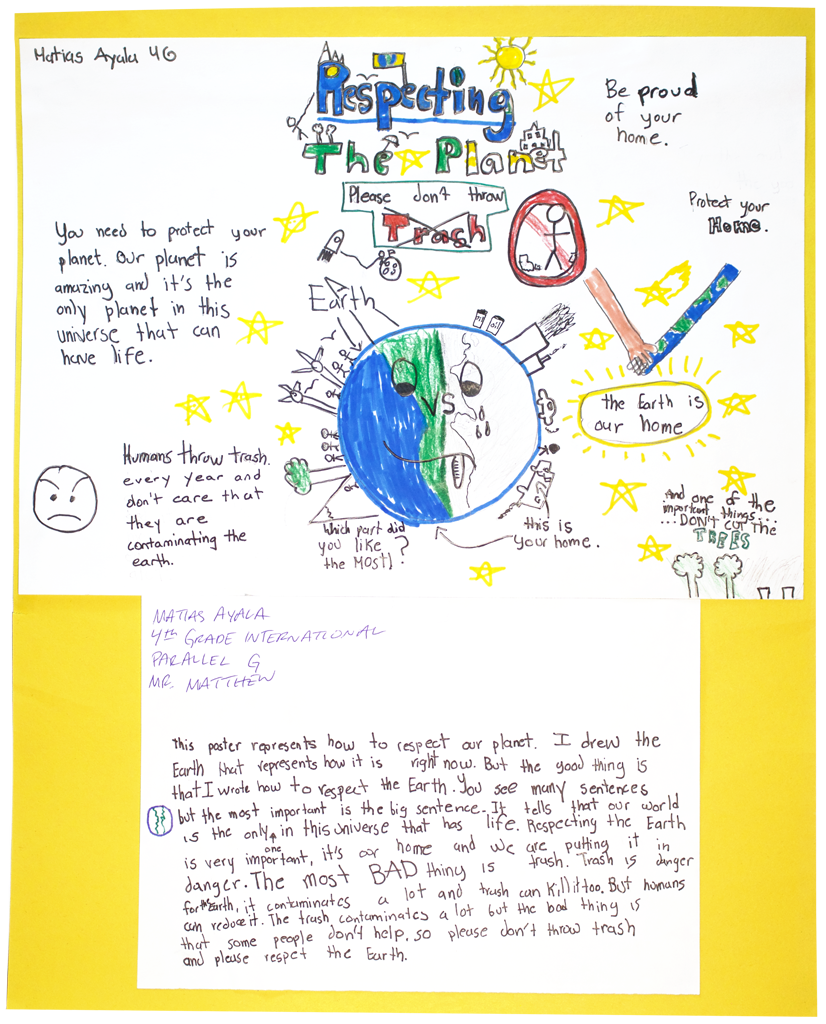 Matias Ayala 4G
Respecting
The Planet
Please don't throw
Trash
Be proud
of your
home.
Protect your
Home.
You need to protect your
planet. Our planet is
amazing and it's the
only planet in this
universe that can
have life.
Earth
VS
the Earth is
our home
Humans throw trash.
every year and
don't care that
they are
contaminating the
earth.
Which part did
you like
the MOST?
this is
your home.
And one of the
important things...
...DON'T CUT THE
TREES
MATIAS AYALA
4th GRADE INTERNATIONAL
PARALLEL G
MR. MATTHEW
This poster represents how to respect our planet. I drew the
Earth that represents how it is right now. But the good thing is
that I wrote how to respect the Earth. You see many sentences
but the most important is the big sentence. It tells that our world
is the only one in this universe that has life. Respecting the Earth
is very important, it's our home and we are putting it in
danger. The most BAD thing is trash. Trash is danger
for the Earth, it contaminates a lot and trash can kill it too. But humans
can reduce it. The trash contaminates a lot but the bad thing is
that some people don't help, so please don't throw trash
and please respet the Earth.